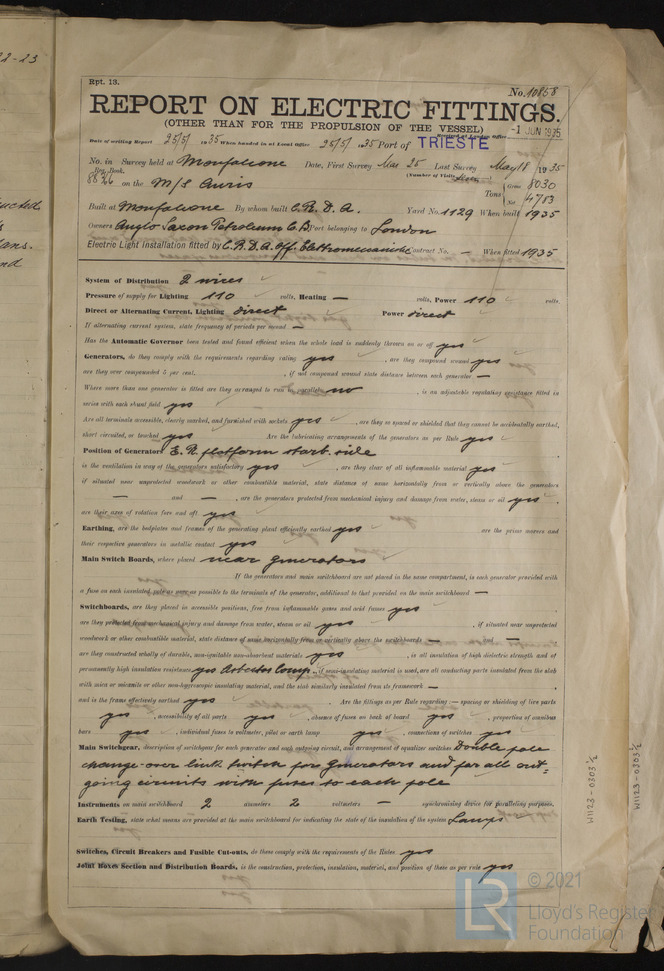 2-23
ucted
s
ans.
nd
Rpt. 13.
No. 10858
REPORT ON ELECTRIC FITTINGS.
(OTHER THAN FOR THE PROPULSION OF THE VESSEL)
-1 JUN 1935
Date of writing Report 25/5/ 1935 When handed in at Local Office 25/5/ 1935 Port of TRIESTE
No. in Survey held at Monfalcone Date, First Survey Mar 25 Last Survey May 18 1935
Reg. Book. (Number of Visits
8836 on the M/S Auris Tons Gross 8030
Net 4783
Built at Monfalcone By whom built C.R.D.A. Yard No. 1129 When built 1935
Owners Anglo Saxon Petroleum Co Port belonging to London
Electric Light Installation fitted by C.R.D.A. Off. Elettromeccaniche Contract No. — When fitted 1935
System of Distribution 2 wires
Pressure of supply for Lighting 110 volts, Heating — volts, Power 110 volts.
Direct or Alternating Current, Lighting direct Power direct
If alternating current system, state frequency of periods per second —
Has the Automatic Governor been tested and found efficient when the whole load is suddenly thrown on or off yes
Generators, do they comply with the requirements regarding rating yes , are they compound wound yes
are they over compounded 5 per cent. , if not compound wound state distance between each generator —
Where more than one generator is fitted are they arranged to run in parallel no , is an adjustable regulating resistance fitted in
series with each shunt field yes
Are all terminals accessible, clearly marked, and furnished with sockets yes , are they so spaced or shielded that they cannot be accidentally earthed,
short circuited, or touched yes Are the lubricating arrangements of the generators as per Rule yes
Position of Generators E.R. platform starb. side
is the ventilation in way of the generators satisfactory yes , are they clear of all inflammable material yes
if situated near unprotected woodwork or other combustible material, state distance of same horizontally from or vertically above the generators
— and — , are the generators protected from mechanical injury and damage from water, steam or oil yes
are their axes of rotation fore and aft yes
Earthing, are the bedplates and frames of the generating plant efficiently earthed yes are the prime movers and
their respective generators in metallic contact yes
Main Switch Boards, where placed near generators
If the generators and main switchboard are not placed in the same compartment, is each generator provided with
a fuse on each insulated pole as near as possible to the terminals of the generator, additional to that provided on the main switchboard —
Switchboards, are they placed in accessible positions, free from inflammable gases and acid fumes yes
are they protected from mechanical injury and damage from water, steam or oil yes , if situated near unprotected
woodwork or other combustible material, state distance of same horizontally from or vertically above the switchboards — and —
are they constructed wholly of durable, non-ignitable non-absorbent materials yes , is all insulation of high dielectric strength and of
permanently high insulation resistance yes Asbestos Comp. , if semi-insulating material is used, are all conducting parts insulated from the slab
with mica or micanite or other non-hygroscopic insulating material, and the slab similarly insulated from its framework —
and is the frame effectively earthed yes Are the fittings as per Rule regarding:— spacing or shielding of live parts
yes , accessibility of all parts yes , absence of fuses on back of board yes , proportion of omnibus
bars yes , individual fuses to voltmeter, pilot or earth lamp yes , connections of switches yes
Main Switchgear, description of switchgear for each generator and each outgoing circuit, and arrangement of equalizer switches Double pole
change-over link switch for generators and for all out=
going circuits with fuses to each pole
Instruments on main switchboard 2 ammeters 2 voltmeters — synchronising device for paralleling purposes.
Earth Testing, state what means are provided at the main switchboard for indicating the state of the insulation of the system Lamps
Switches, Circuit Breakers and Fusible Cut-outs, do these comply with the requirements of the Rules yes
Joint Boxes Section and Distribution Boards, is the construction, protection, insulation, material, and position of these as per rule yes
W1123-0303 1/2
W1123-0303 1/2
LR
© 2021
Lloyd's Register
Foundation